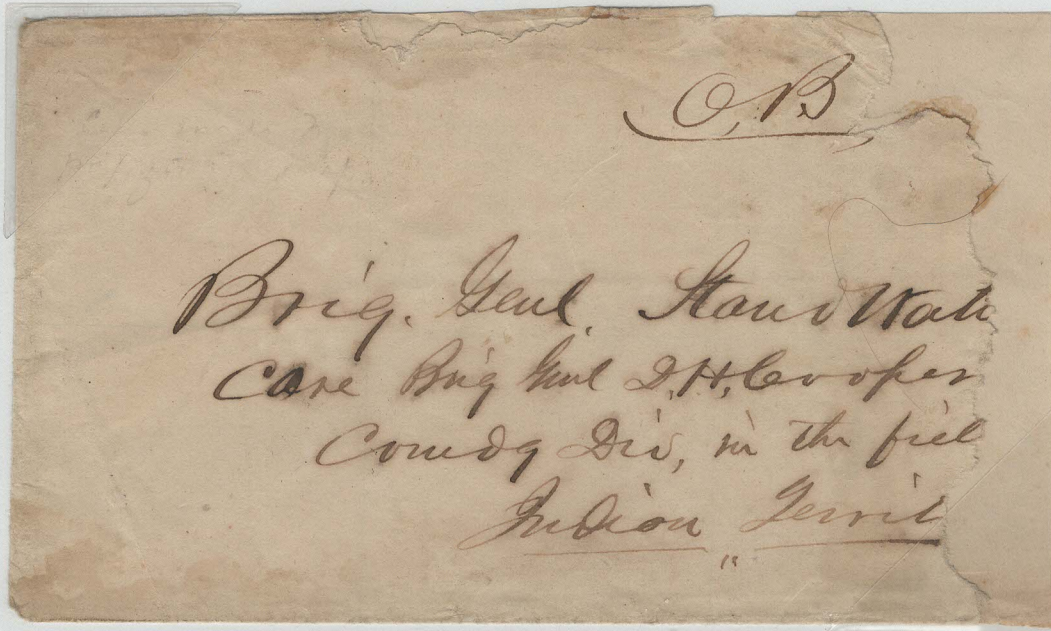 O, B
Brig. Genl. Stand Wati
Care Brig Genl D. H. Cooper
Comdg Div, in the fiel
Indian Territ